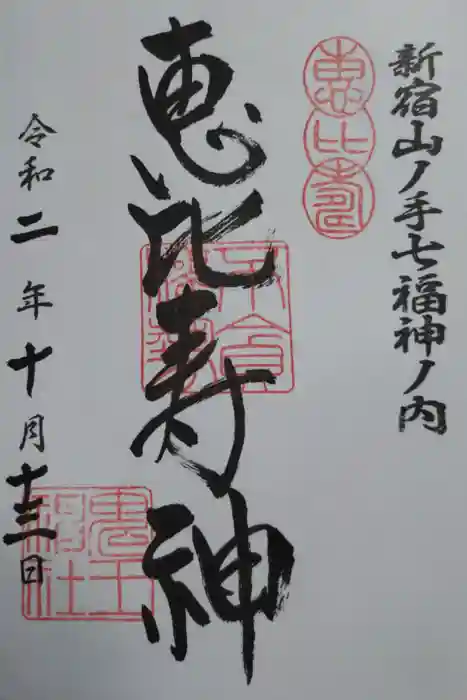 新宿山ノ手七福神ノ内
恵比寿
恵比寿神
令和二年十月十三日